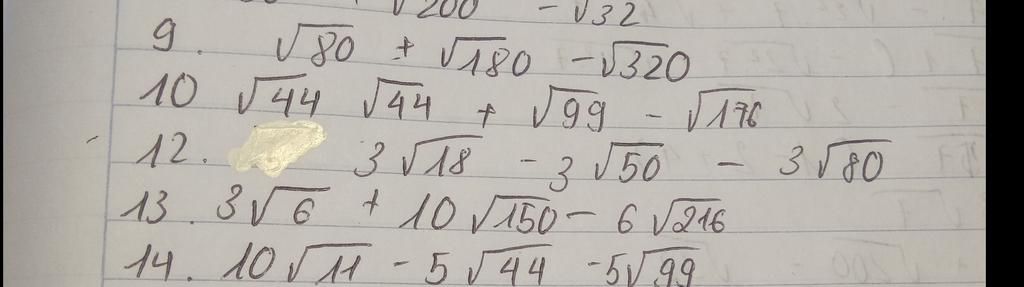 √200 - √32
9. √80 + √180 - √320
10 √44 √44 + √99 - √176
12. 3√18 - 3√50 - 3√80
13. 3√6 + 10√150 - 6√216
14. 10√11 - 5√44 - 5√99